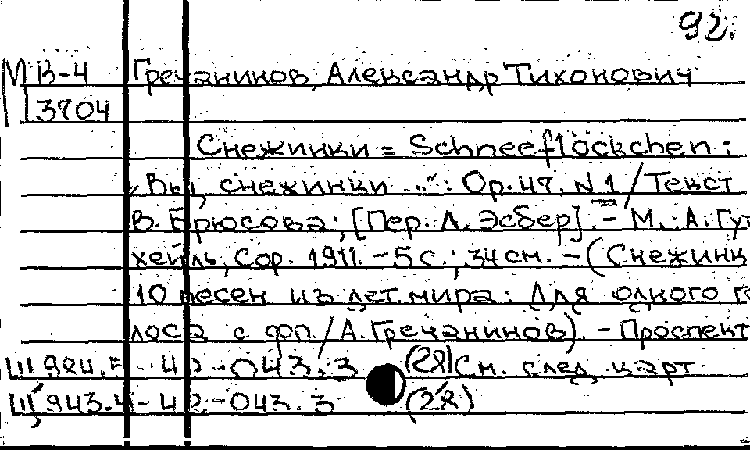 92.
М В-4 Гречанинов, Александр Тихонович
3704
Снежинки = Schneeflöckchen :
„Вы, снежинки ...“ : Ор. 47. N 1 / Текст
В. Брюсова ; [Пер. Л. Эсбер]. - М. : А. Гут
хейль, Cop. 1911. - 5 с. ; 34 см. - (Снежинк
10 песен из дет. мира : Для одного го
лоса с фп. / А. Гречанинов). - Проспект
Щ 42-043.3 (2Я) См. след. карт
Щ 943.4-42-043.3 (2Я)